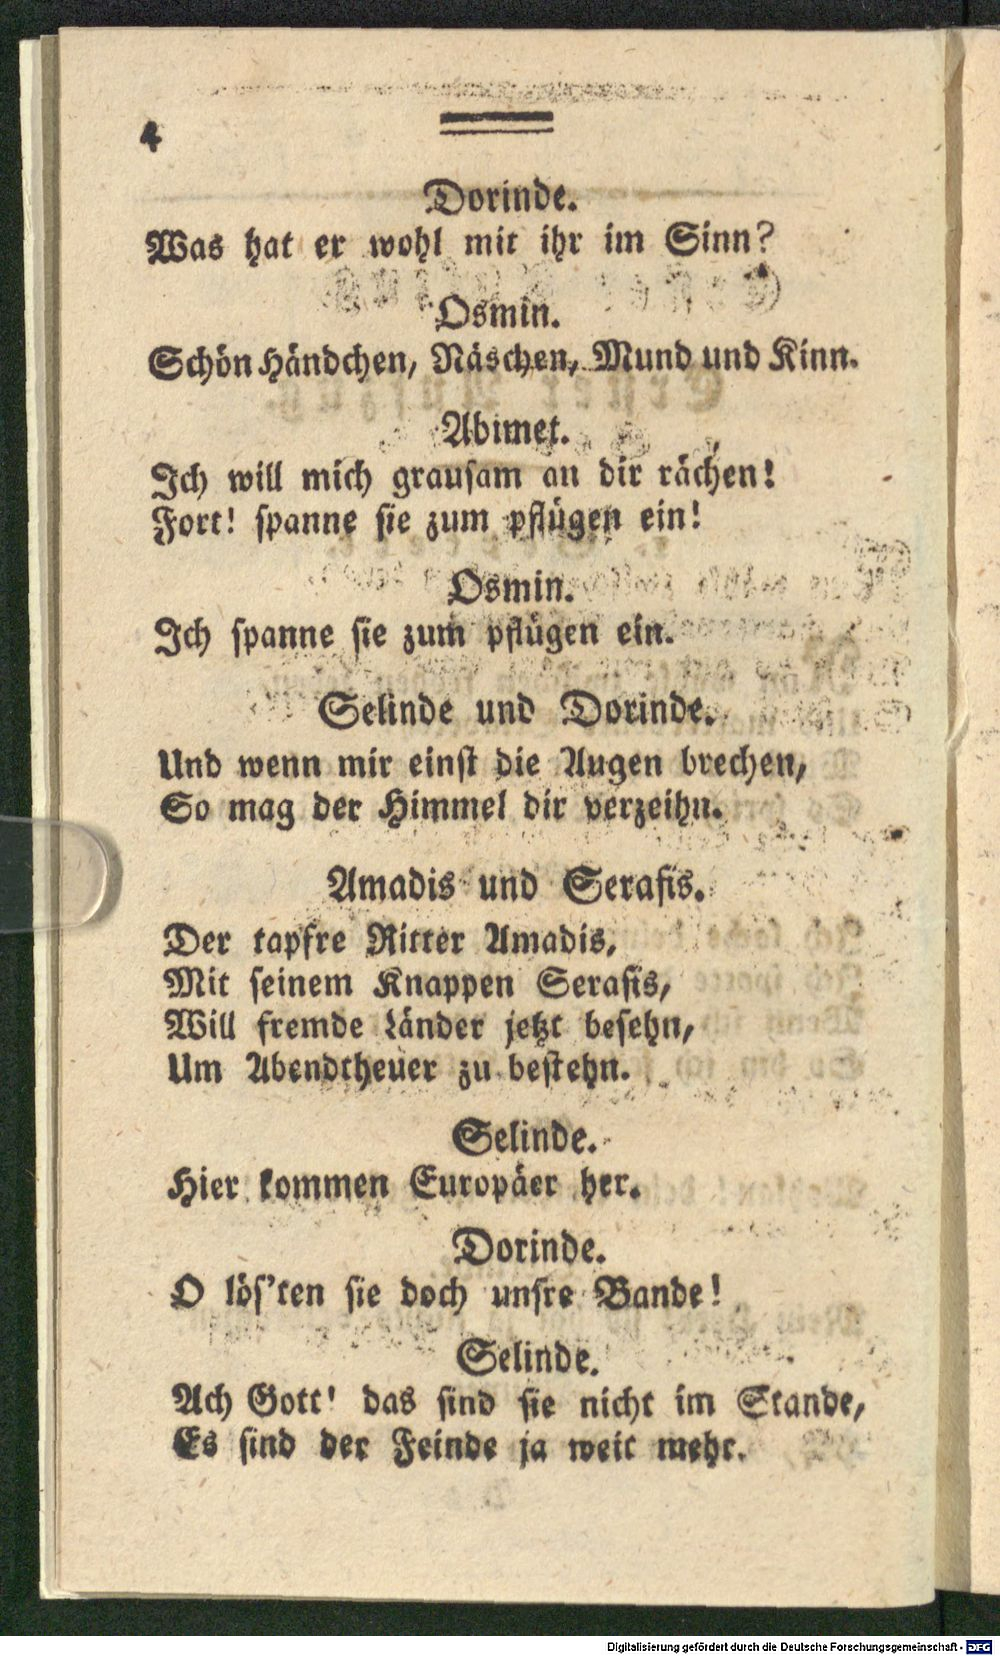 4
Dorinde.
Was hat er wohl mit ihr im Sinn?
Osmin.
Schön Händchen, Näschen, Mund und Kinn.
Abimet.
Ich will mich grausam an dir rächen!
Fort! spanne sie zum pflügen ein!
Osmin.
Ich spanne sie zum pflügen ein.
Selinde und Dorinde.
Und wenn mir einst die Augen brechen,
So mag der Himmel dir verzeihn.
Amadis und Serafis.
Der tapfre Ritter Amadis,
Mit seinem Knappen Serafis,
Will fremde Länder jetzt besehn,
Um Abendtheuer zu bestehn.
Selinde.
Hier kommen Europäer her.
Dorinde.
O lös'ten sie doch unsre Bande!
Selinde.
Ach Gott! das sind sie nicht im Stande,
Es sind der Feinde ja weit mehr.
Digitalisierung gefördert durch die Deutsche Forschungsgemeinschaft - DFG